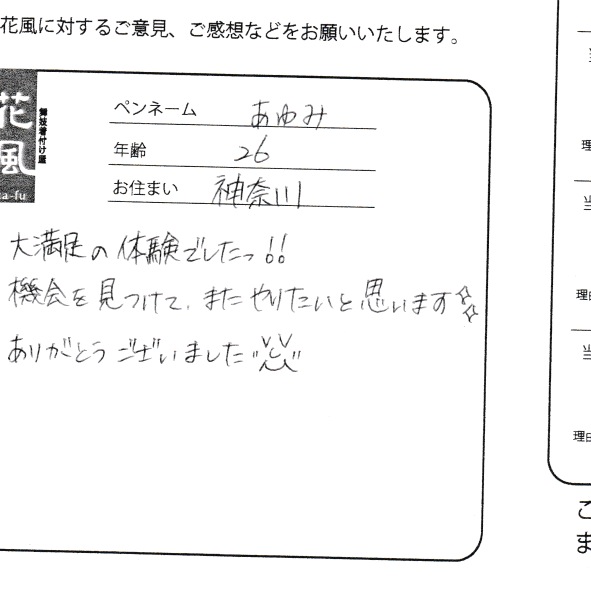 花風に対するご意見、ご感想などをお願いいたします。
花風
舞妓着付け屋
a-fu
ペンネーム あゆみ
年齢 26
お住まい 神奈川
大満足の体験でしたっ!!
機会を見つけて、またやりたいと思います☆☆
ありがとうございました
理
当
理由
当
理由
こ
ま